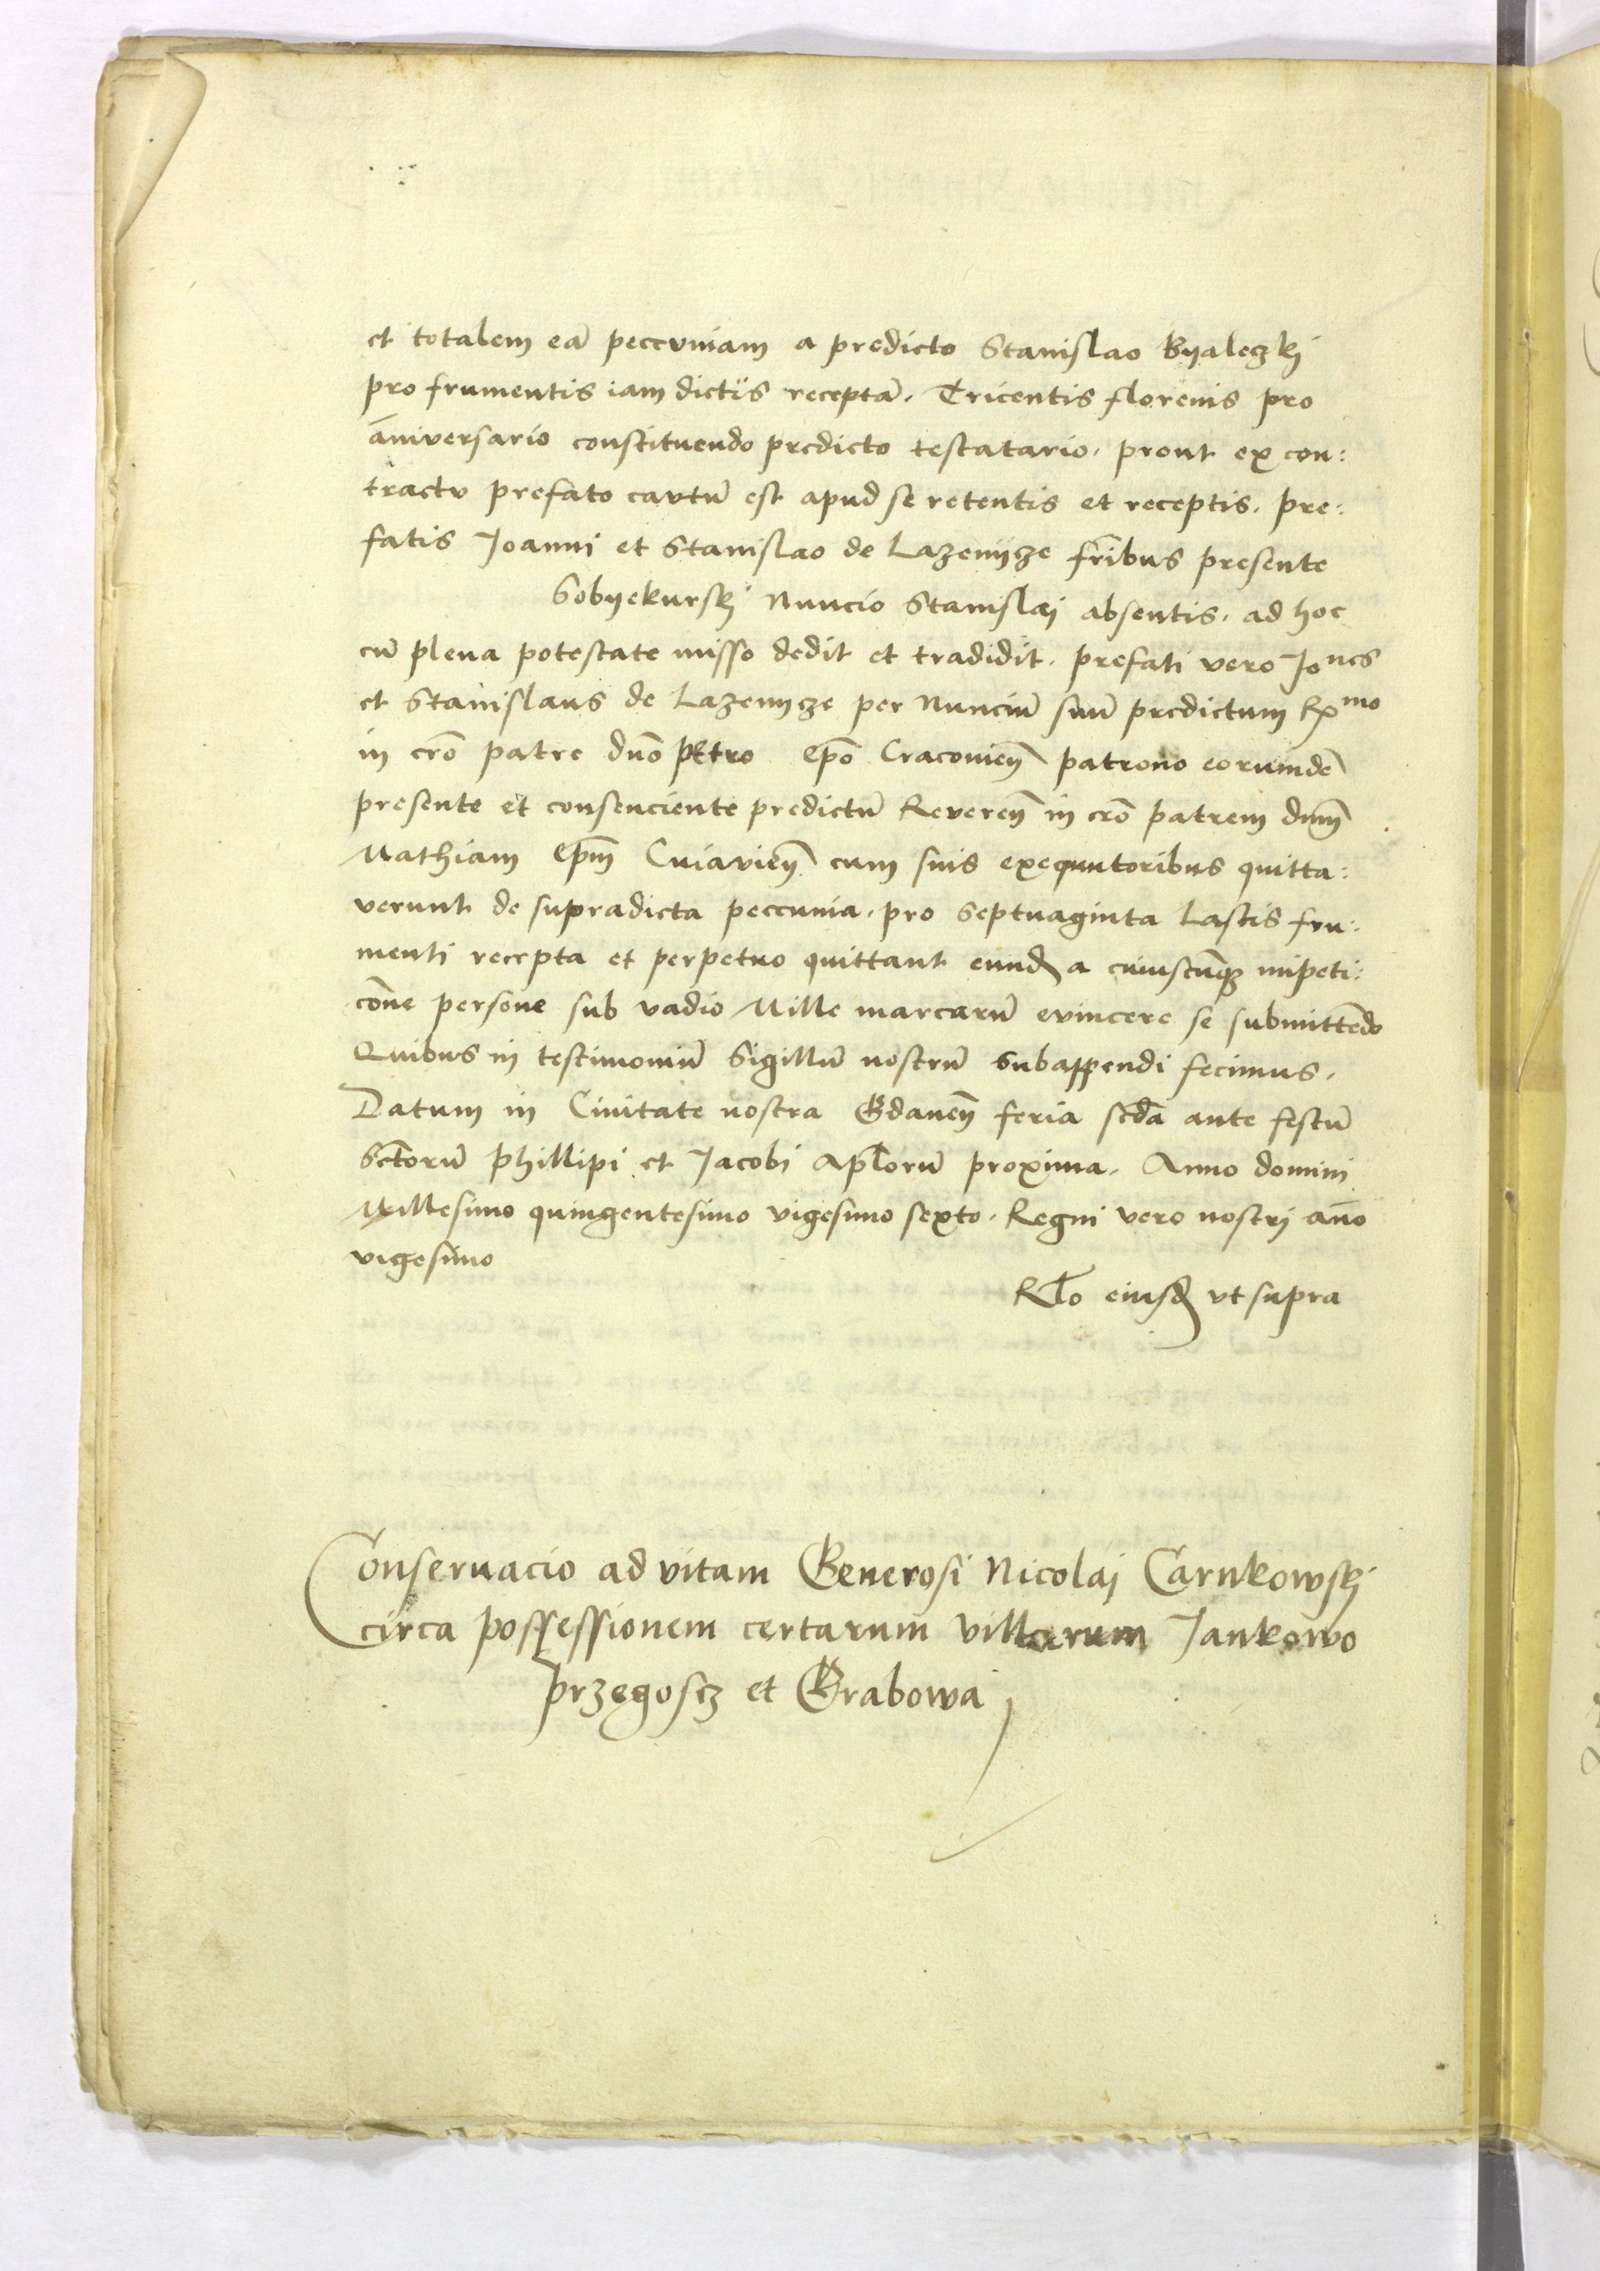 et totalem eā peccuniam a predicto Stanislao Byaleczkj
pro frumentis iam dictis receptā. Tricentis florenis pro
āniversario constituendo predicto testatario. prout ex con:
tractu prefato cautū est apud se retentis et receptis. pre:
fatis Joanni et Stanislao de Lazenycze fr̄ibus presente
Sobyekurskj Nuncio Stanislaj absentis. ad hoc
cū plena potestate misso dedit et tradidit. prefati vero Jones
et Stanislaus de Lazenycze per Nunciū suū predictum Rxmo
in cr̄o patre dn̄o pEtro ep̄o Cracovien̄ patrono eorumdē
presente et consenciente predictū Reveren̄ in cr̄o patrem dn̄m
Mathiam Ep̄m Cuiavien̄ cum suis exequutoribus quitta:
verunt de supradicta peccunia. pro Septuaginta Lastis fru:
menti recepta et perpetuo quittant eund̄ a cuiuscūq impeti:
cōne persone sub vadio Mille marcarū evincere se submittēdo
Quibus in testimoniū Sigillū nostrū subappendi fecimus.
Datum in Civitate nostra Gdanen̄ feria scd̄a ante festū
Sctōrū Phillipi et Jacobi Apl̄orū proxima. Anno domini
Millesimo quingentesimo vigesimo sexto. Regni vero nostrj an̄o
vigesimo
Rl̄o eiusd̄ vt supra
Conservacio ad vitam Generosi Nicolaj Carnkowskj
circa possessionem certarum villarum Jankowo
Przegoscz et Grabowa